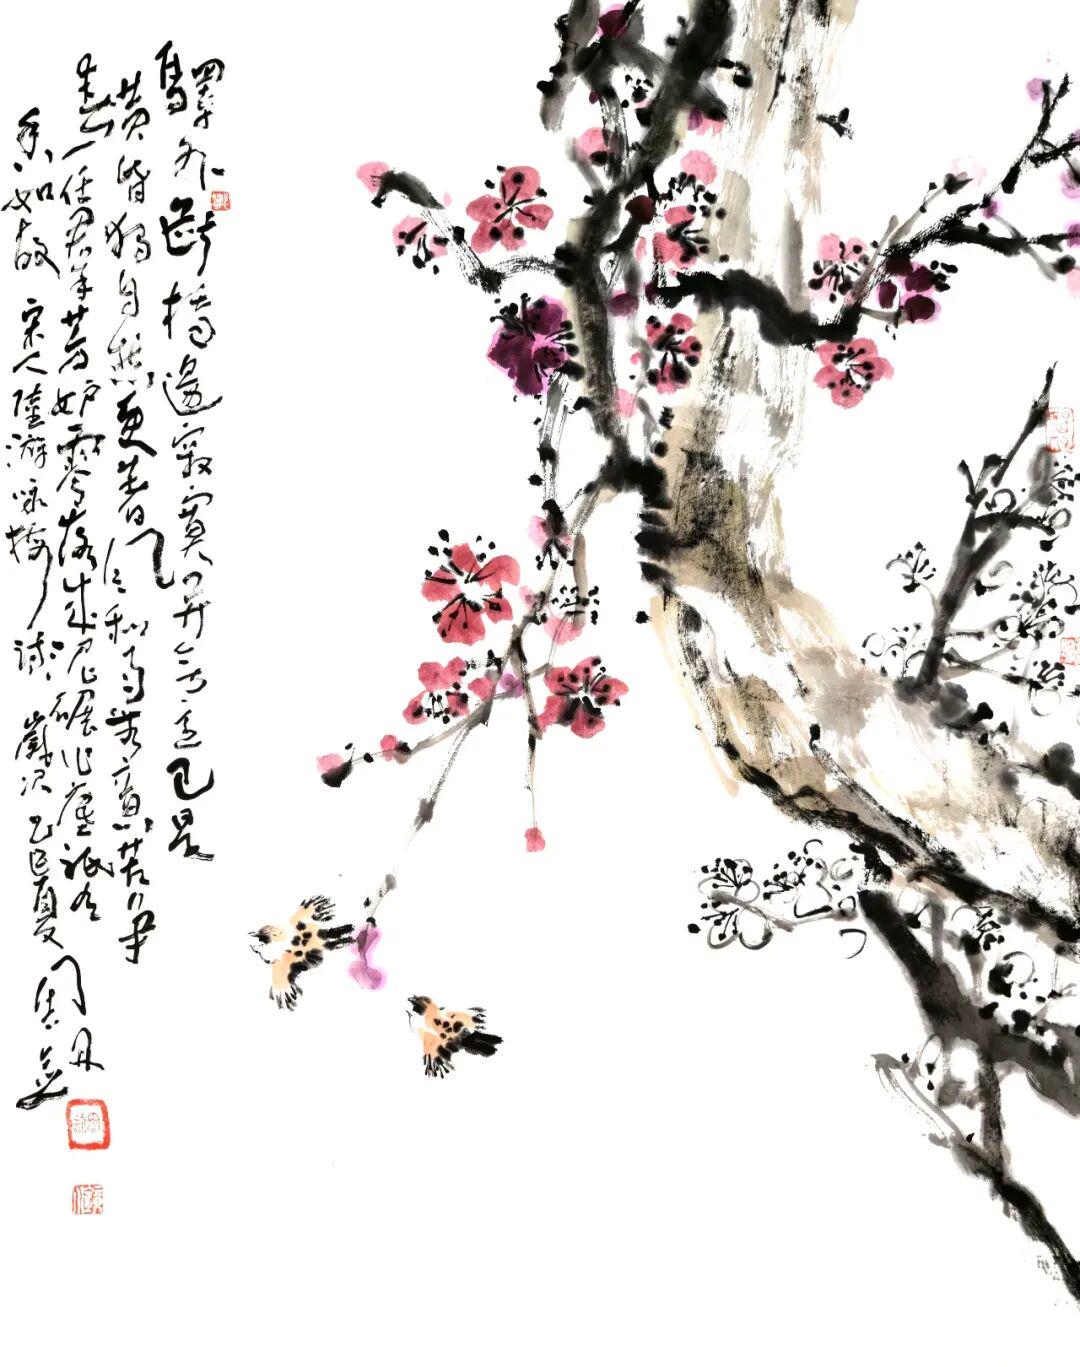 驛外斷橋邊寂寞開無主已是
黄昏獨自愁更着風和雨無意苦爭
春一任群芳妒零落成泥碾作塵祇有
香如故 宋人陸游咏梅詩 歲次乙巳夏
周丹